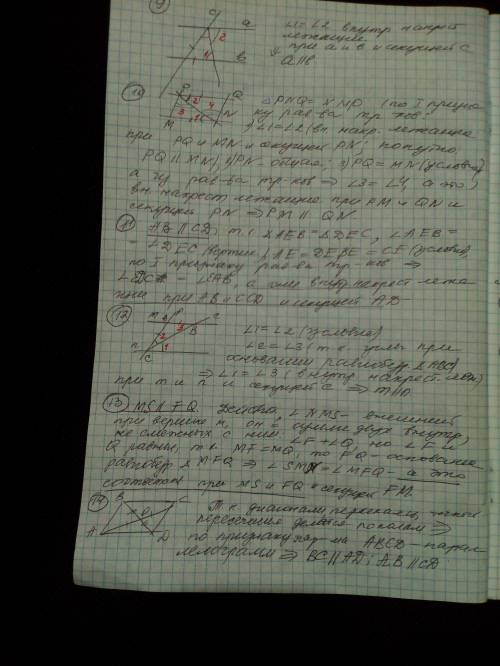 9
c
a
2
1
b
∠1=∠2 внутр накрест
лежащие
при a и b и секущей c
a||b
10
P
Q
M
N
△PNQ = △NMP (по I призна
ку рав-ва тр-ков
1) ∠1=∠2 (вн. накр. лежащие
при PQ и MN и секущей PN; потому
PQ || MN); 2) PN - общая; 3) PQ = MN (условие)
а из рав-ва тр-ков ⇒ ∠3 = ∠4, а это
вн. накрест лежащие при PM и QN и
секущей PN ⇒ PM || QN
11
AB || CD, т.к. △AEB = △DEC, ∠AEB =
= ∠DEC (вертик), AE = DE, BE = CE (условие)
по I признаку рав-ва тр-ков ⇒
∠EAB, а они внутр накрест лежа
щие при AB и CD и секущей AD
12
m
B
c
n
C
3
2
1
∠1=∠2 (условие)
∠2=∠3 (т.к. углы при
основании равнобедр. △ABC)
⇒ ∠1=∠3 (внутр. накрест. леж)
при m и n и секущей c ⇒ m||n
13
MS || FQ. ∠NMS - внешний
при вершине M, он = сумме двух внутр,
не смежных с ним ∠F + ∠Q, но ∠F и
Q равны, т.к. MF = MQ, то FQ - основание
равнобедр △MFQ ⇒ ∠SMN = ∠MFQ - а это
соответств при MS и FQ и секущей FM.
14
B
C
A
D
O
Т.к. диагонали пересекаясь, точкой
пересечения делятся пополам ⇒
по признаку пар-ма ABCD - парал
лелограмм ⇒ BC || AD; AB || CD